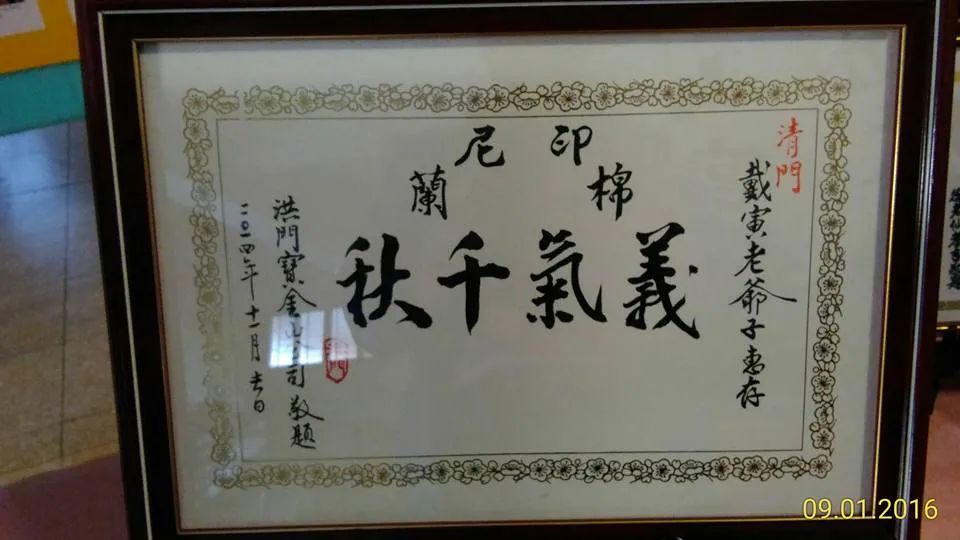 清門
戴寅老爺子惠存
印尼
棉蘭
義氣千秋
洪門寶金山司敬題
二〇一四年十一月吉日
09.01.2016